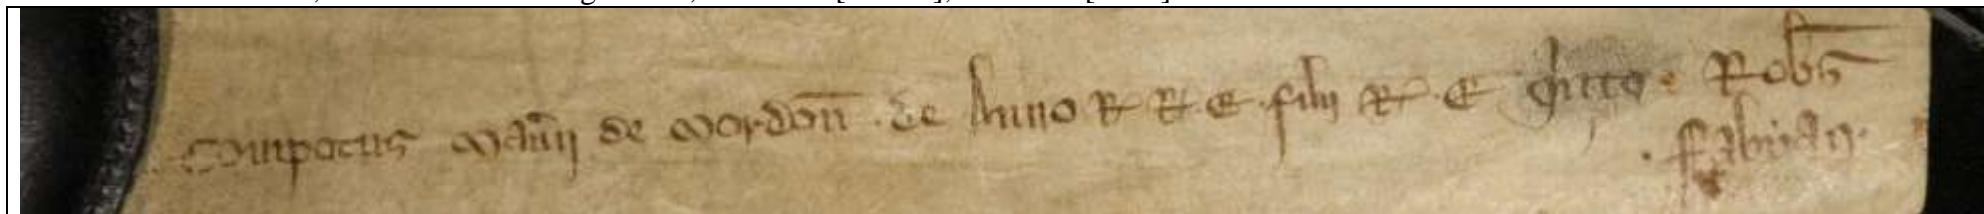 Compotus Man̄ij de Mordon̄ . de Anno R R E . filij R . E q̄nto . Rob̄s
. Fabyan .